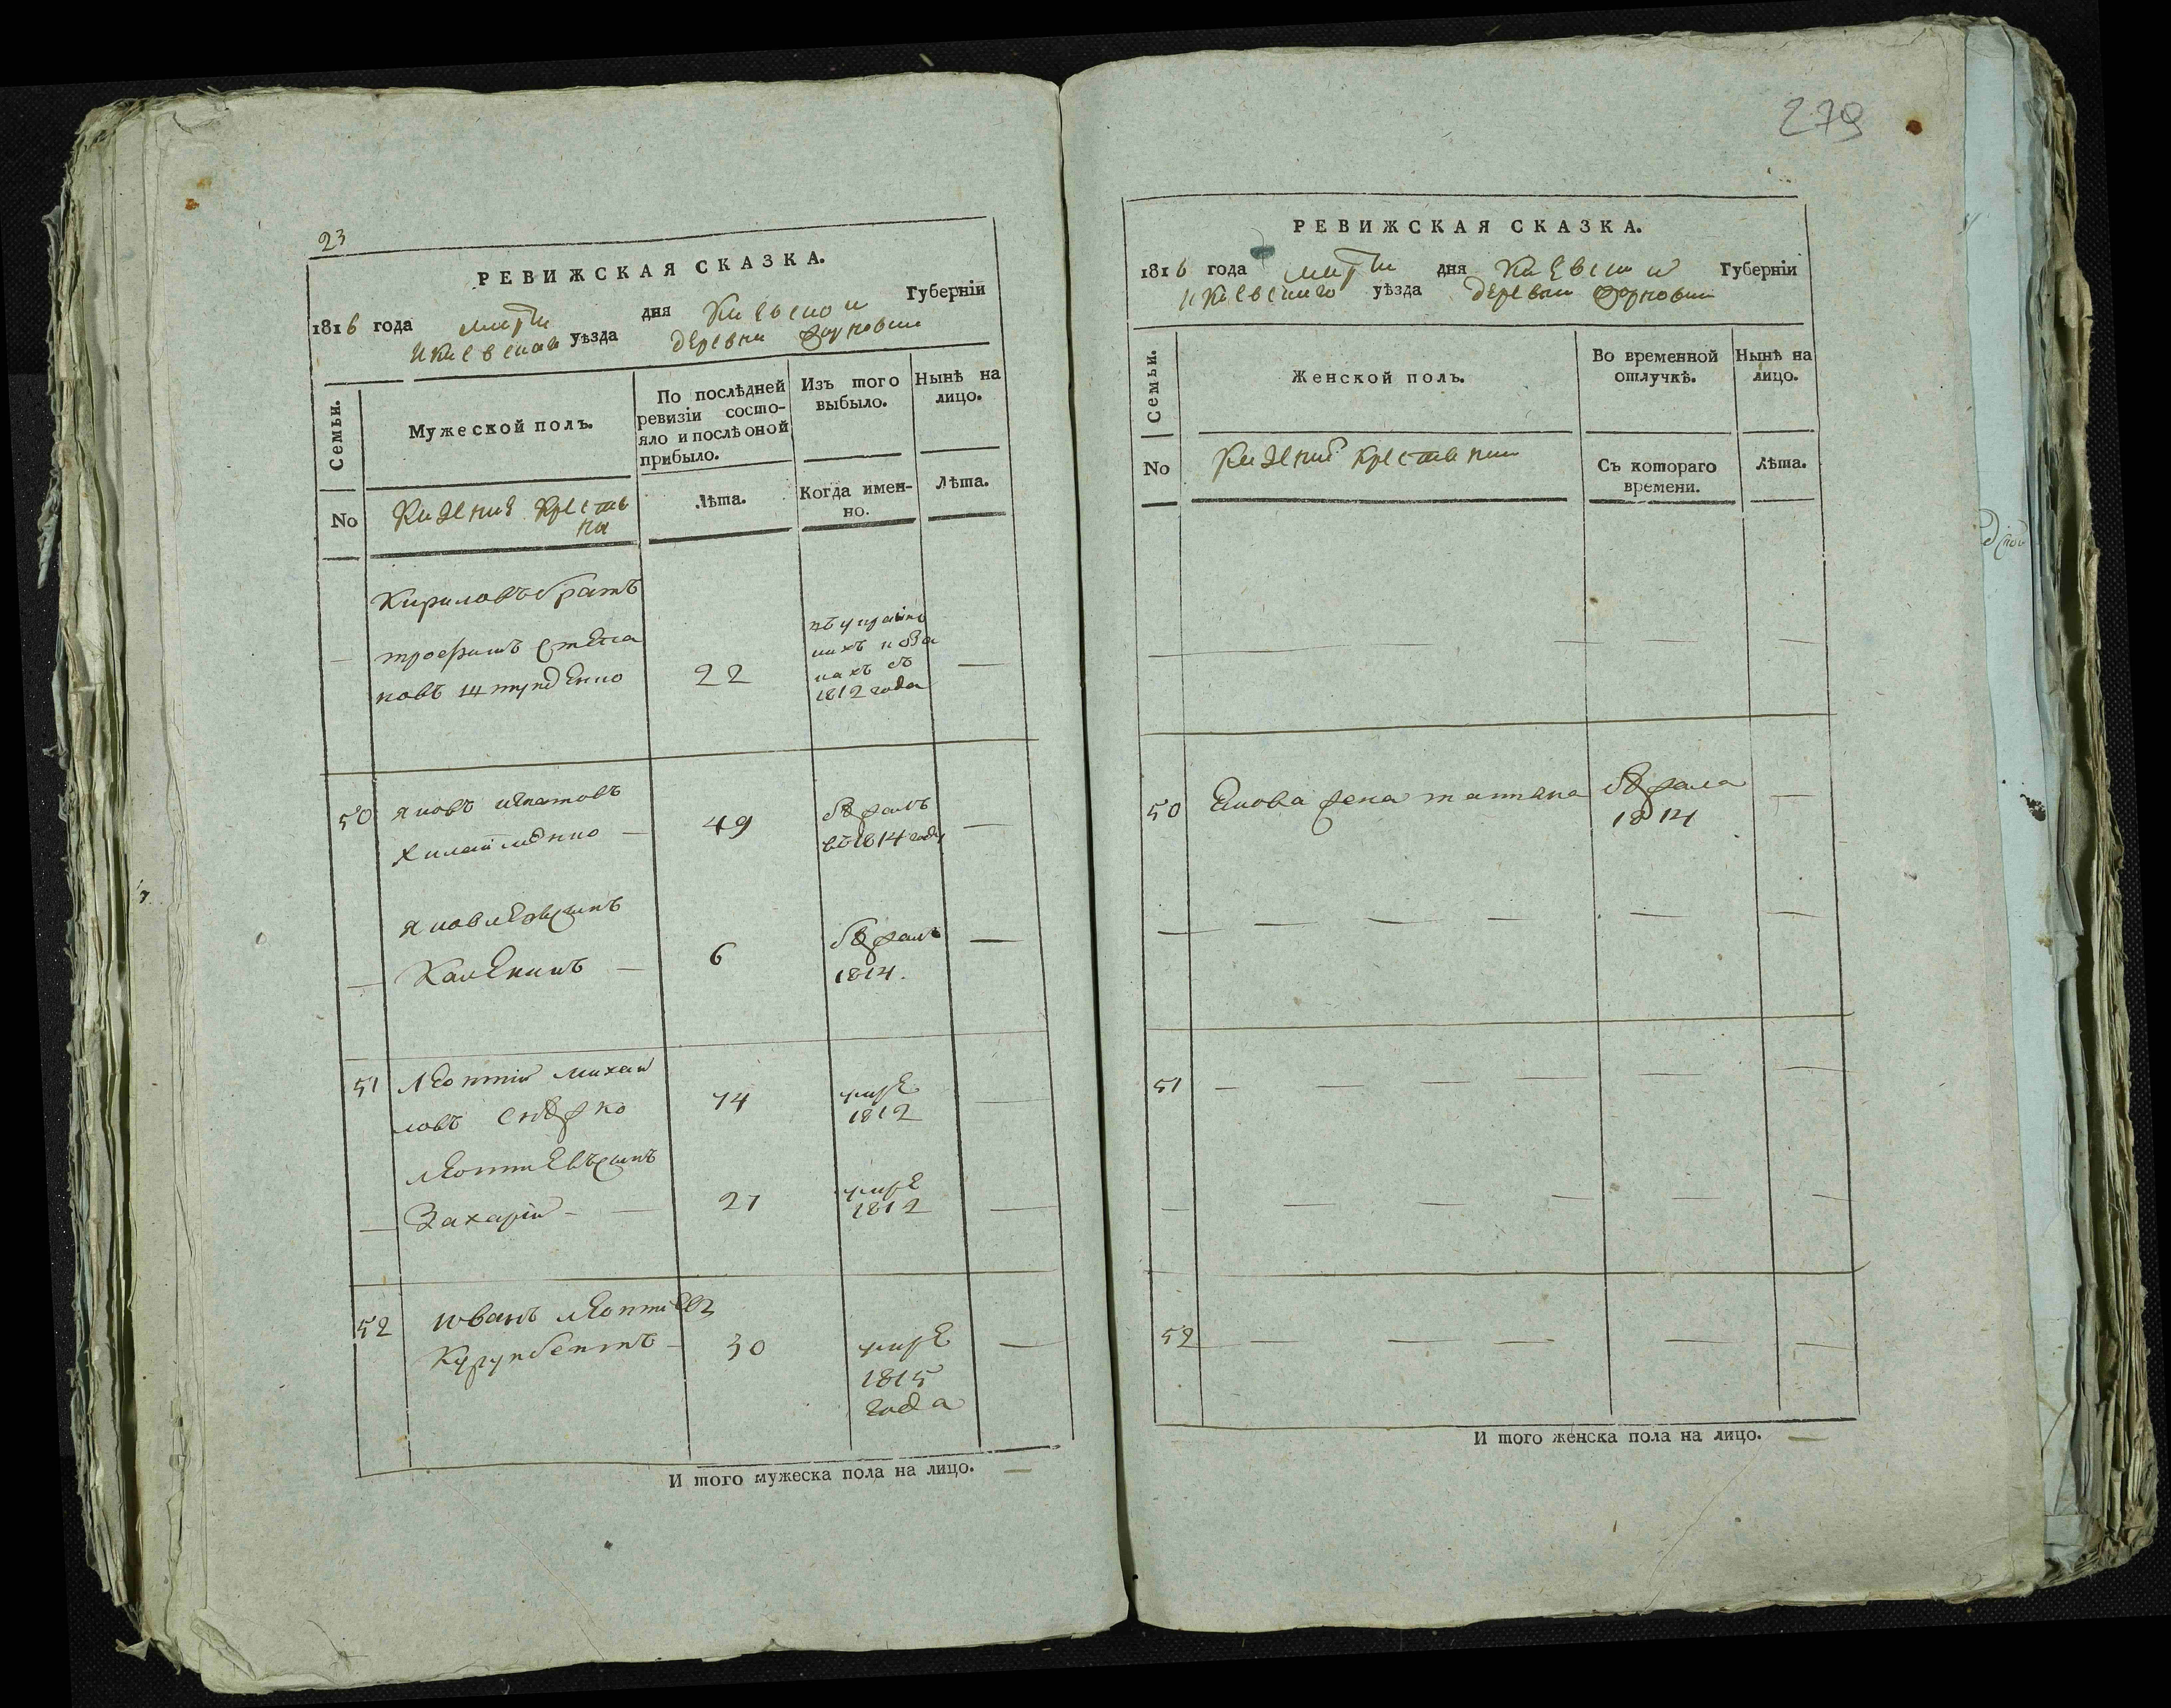 23
РЕВИЖСКАЯ СКАЗКА.
1816 года марта дня Киевской Губерніи
и Киевскаго уѣзда деревни
Семьи.
Мужеской полъ.
По послѣдней ревизіи состояло и послѣ оной прибыло.
Изъ того выбыло.
Нынѣ на лицо.
No
Казенные крестьяне
Лѣта.
Когда именно.
Лѣта.
Кириловъ братъ
трофимъ степа
новъ
22
1812 года
50
яковъ игнатовъ
49
бѣжалъ
въ 1814 году
яковлевъ сынъ
Каленикъ
6
бѣжалъ
1814.
51
леонтій михай
ловъ
74
умре
1812
леонтиевъ сынъ
Захарій
27
умре
1812
52
иванъ леонтиевъ
30
умре
1815
года
И того мужеска пола на лицо. —
279
РЕВИЖСКАЯ СКАЗКА.
1816 года марта дня Киевской Губерніи
и Киевскаго уѣзда деревни
Семьи.
Женской полъ.
Во временной отлучкѣ.
Нынѣ на лицо.
No
Казенные крестьяне
Съ котораго времени.
Лѣта.
50
Якова жена татьяна
бѣжала
1814
51
52
И того женска пола на лицо. —